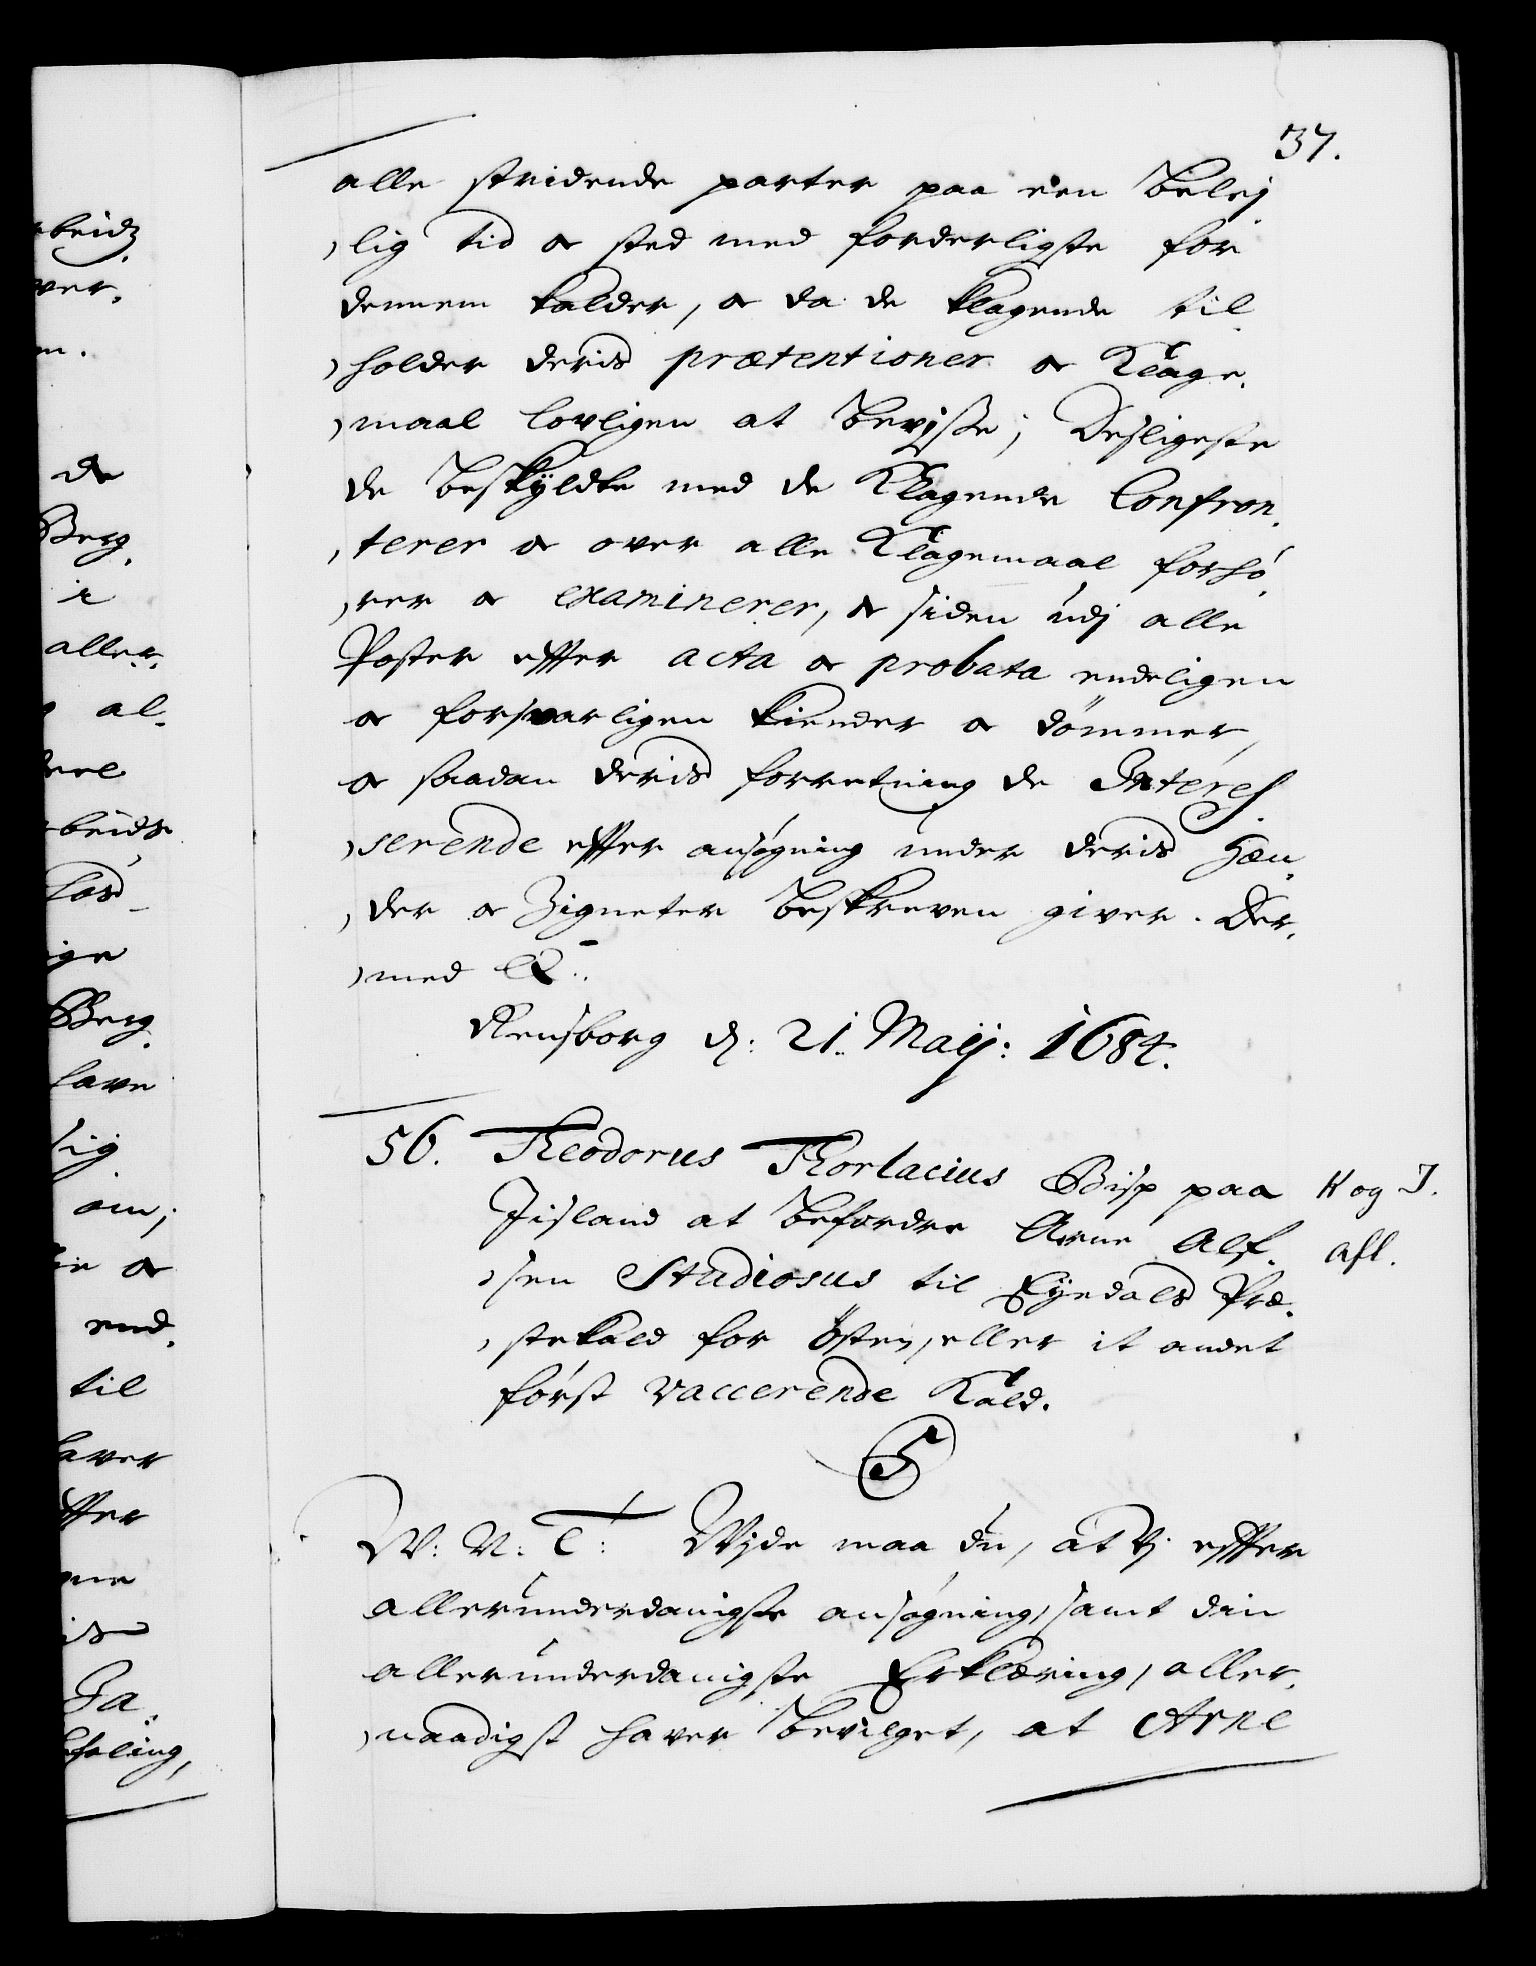 37.
alle stridende parter paa een Belej
lig tid & sted med forderligste for
dennem kalder, & da de klagende til
holder deris prætentioner & Klage,
maal lovligen at Bevjsse; Desligeste
de beskÿldte med de Klagende Confron,
terer & over alle Klagemaal forhø,
rer & examinerer, & siden udj alle
Poster effter acta & probata endeligen
& forsvarligen kiender & dömmer,
& saadan deris forretning de Interes,
serende effter ansøgning under deris Hæn,
der & Zigneter beskreven giver. Der,
med &c:
Rensborg d: 21. Maij: 1684.
56. Theodorus Thorlacius Bisp paa
Jisland at befordre Arne Alf,
sen Studiosus til Eÿedals Præ,
stekald for Östen, eller it andet
först vaccerende Kald.
K og I.
afl.
C5
W: V: T: Wjde maa du, at Vj effter
allerunderdanigste ansøgning, samt din
allerunderdanigste Erklæring, aller,
naadigst haver bevilget, at Arne
arbeids
ver,
de
Berg,
aller,
al,
Berg
have
sig
om;
end,
til
haver
effter